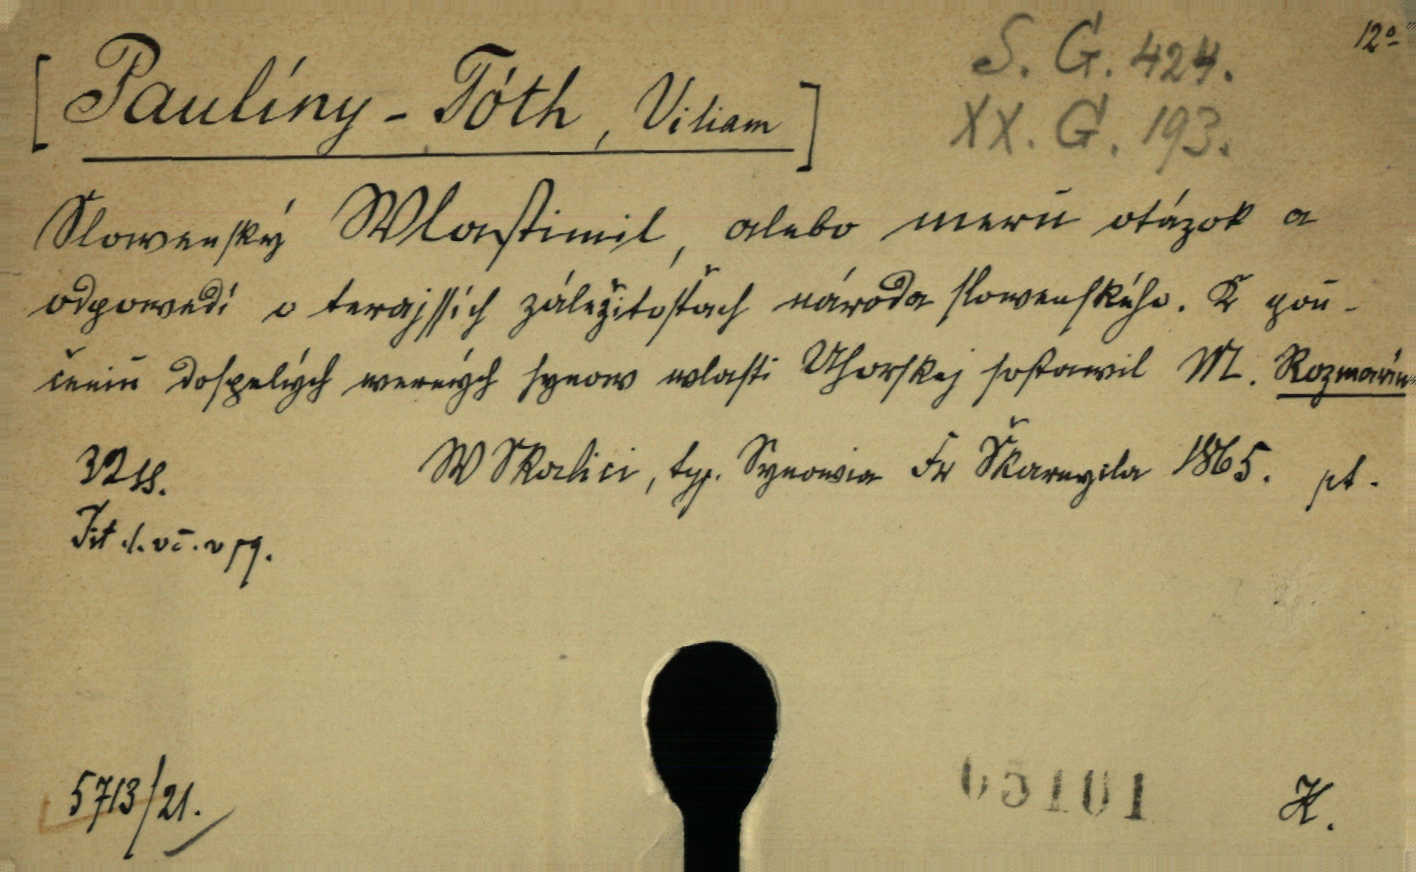 12°
[Paulíny-Tóth, Viliam]
S. G. 424.
XX. G. 193.
Slowenský Wlastimil, alebo merú otázok a
odpowedí o terajssích záležitosťach národa slowenského. K pou-
čeniu dospelých werných synow wlasti Uhorskej sostawil M. Rozmarín
32 ss. W Skalici, typ. Synowia Fr Škarnycla 1865. pt.
Tit. l.
5713/21.
05101
K.